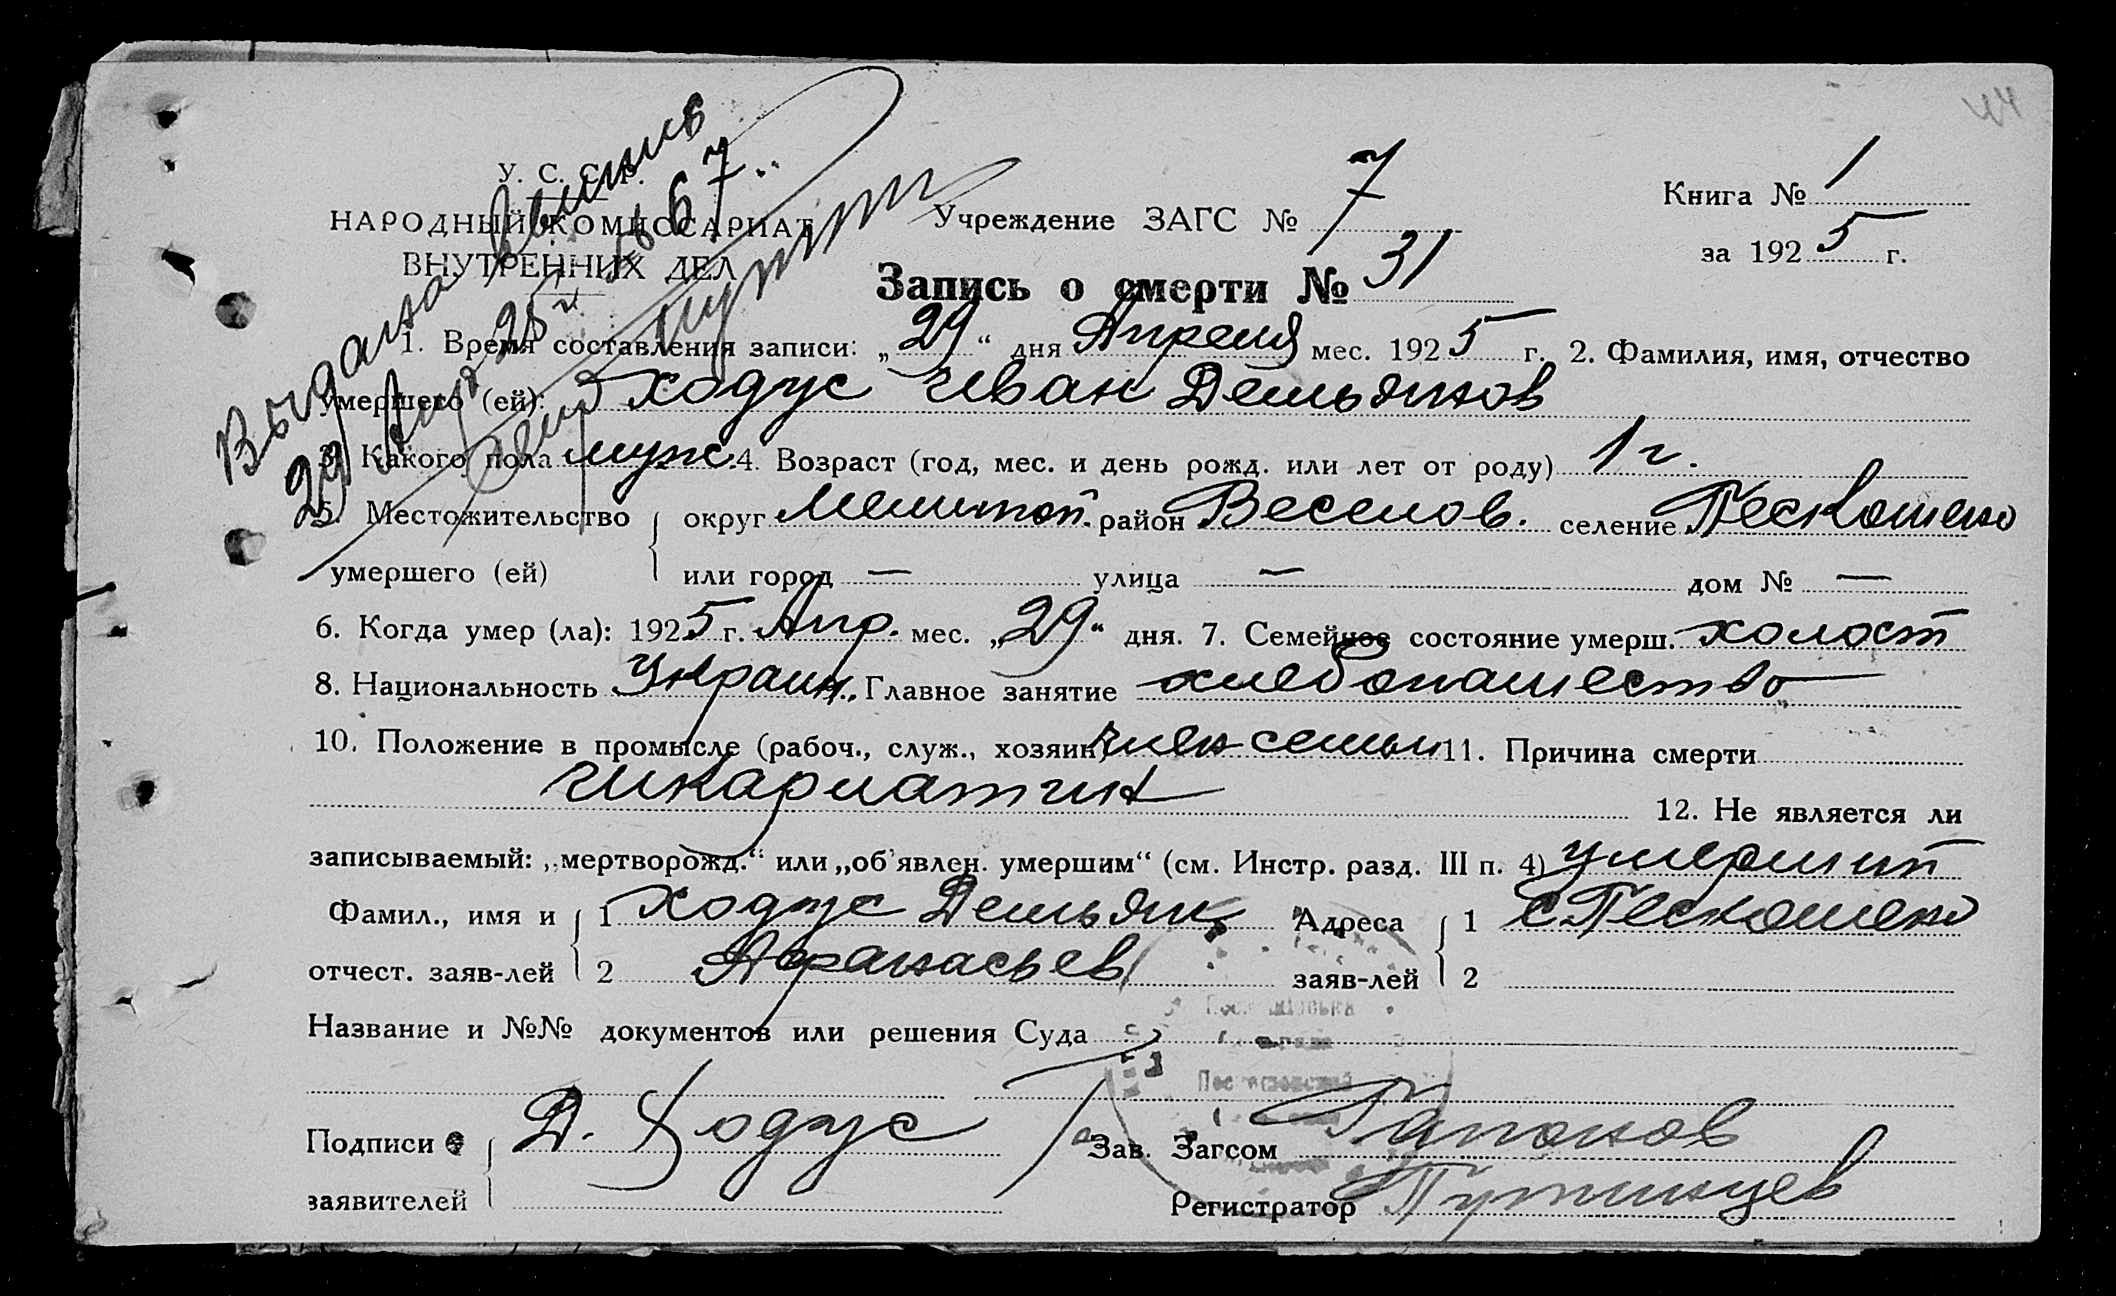 У. С. С. Р.
НАРОДНЫЙ КОМИССАРИАТ
ВНУТРЕННИХ ДЕЛ
Выдана выпись
29 Апр 25 г. № 67
Учреждение ЗАГС № 7
Книга № 1
за 1925 г.
Запись о смерти № 31
1. Время составления записи: „29“ дня Апреля мес. 1925 г. 2. Фамилия, имя, отчество
умершего (ей): Ходус Иван Демьянов
3. Какого пола муж. 4. Возраст (год, мес. и день рожд. или лет от роду) 1 г.
5. Местожительство округ Мелитоп. район Веселов. селение Пескошено
умершего (ей) или город — улица — дом № —
6. Когда умер (ла): 1925 г. Апр. мес. „29“ дня. 7. Семейное состояние умерш. холост
8. Национальность Украин. Главное занятие хлебопашество
10. Положение в промысле (рабоч., служ., хозяин) член семьи 11. Причина смерти
12. Не является ли
записываемый: „мертворожд.“ или „об'явлен. умершим“ (см. Инстр. разд. III п. 4) умерший
Фамил., имя и 1 Ходус Демьян Адреса 1 с Пескошено
отчест. заяв-лей 2 Афанасьев заяв-лей 2
Название и №№ документов или решения Суда
Подписи Д. Ходус Зав. Загсом Гапонов
заявителей Регистратор Путинцев